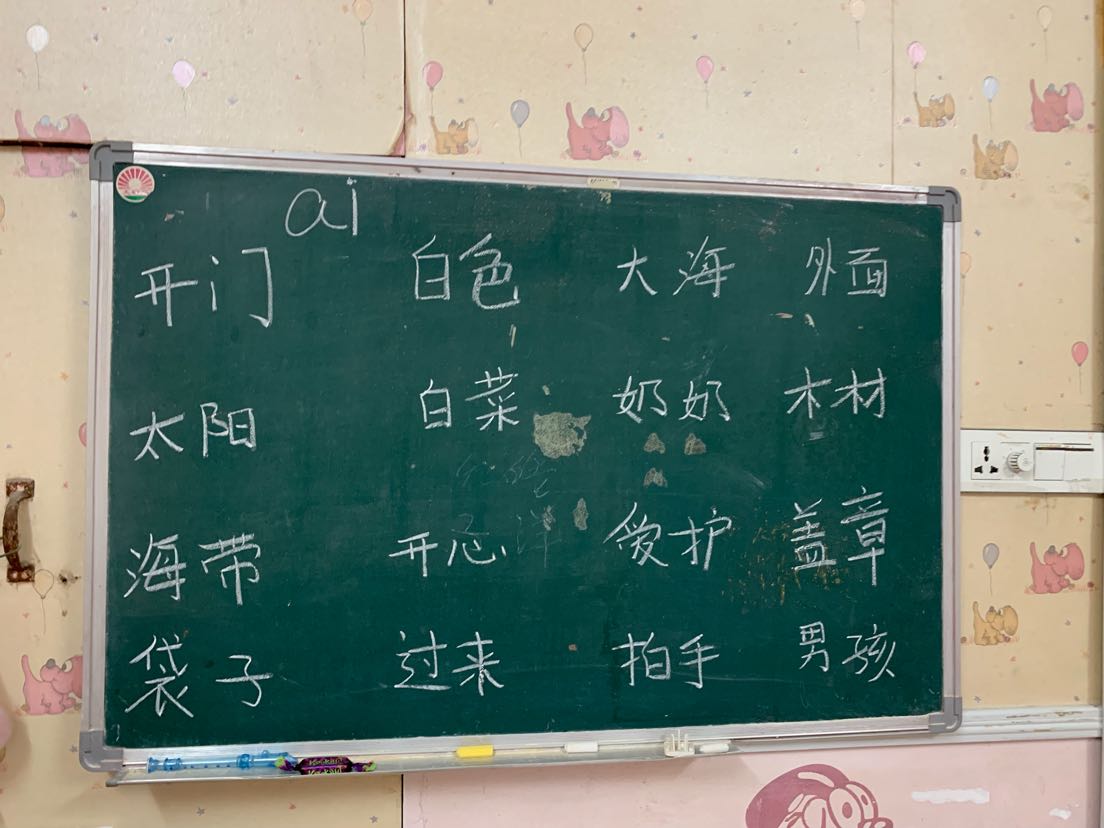 ai
开门 白色 大海 外面
太阳 白菜 奶奶 木材
海带 开心 爱护 盖章
袋子 过来 拍手 男孩